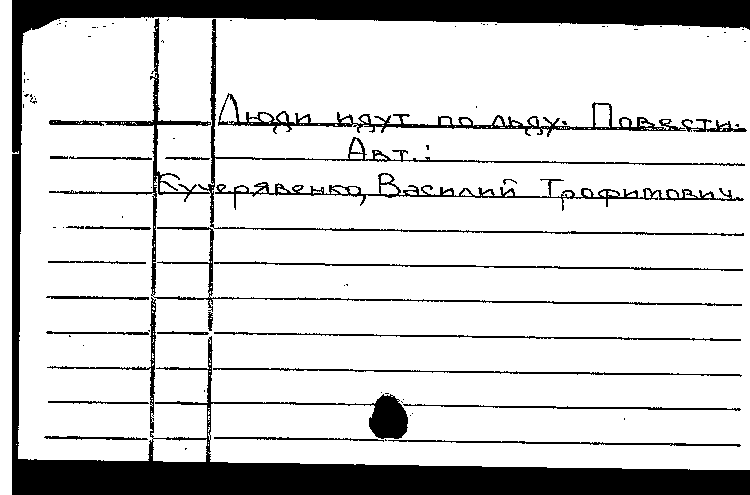 Люди идут по льду. Повести.
Авт.:
Кучерявенко, Василий Трофимович.